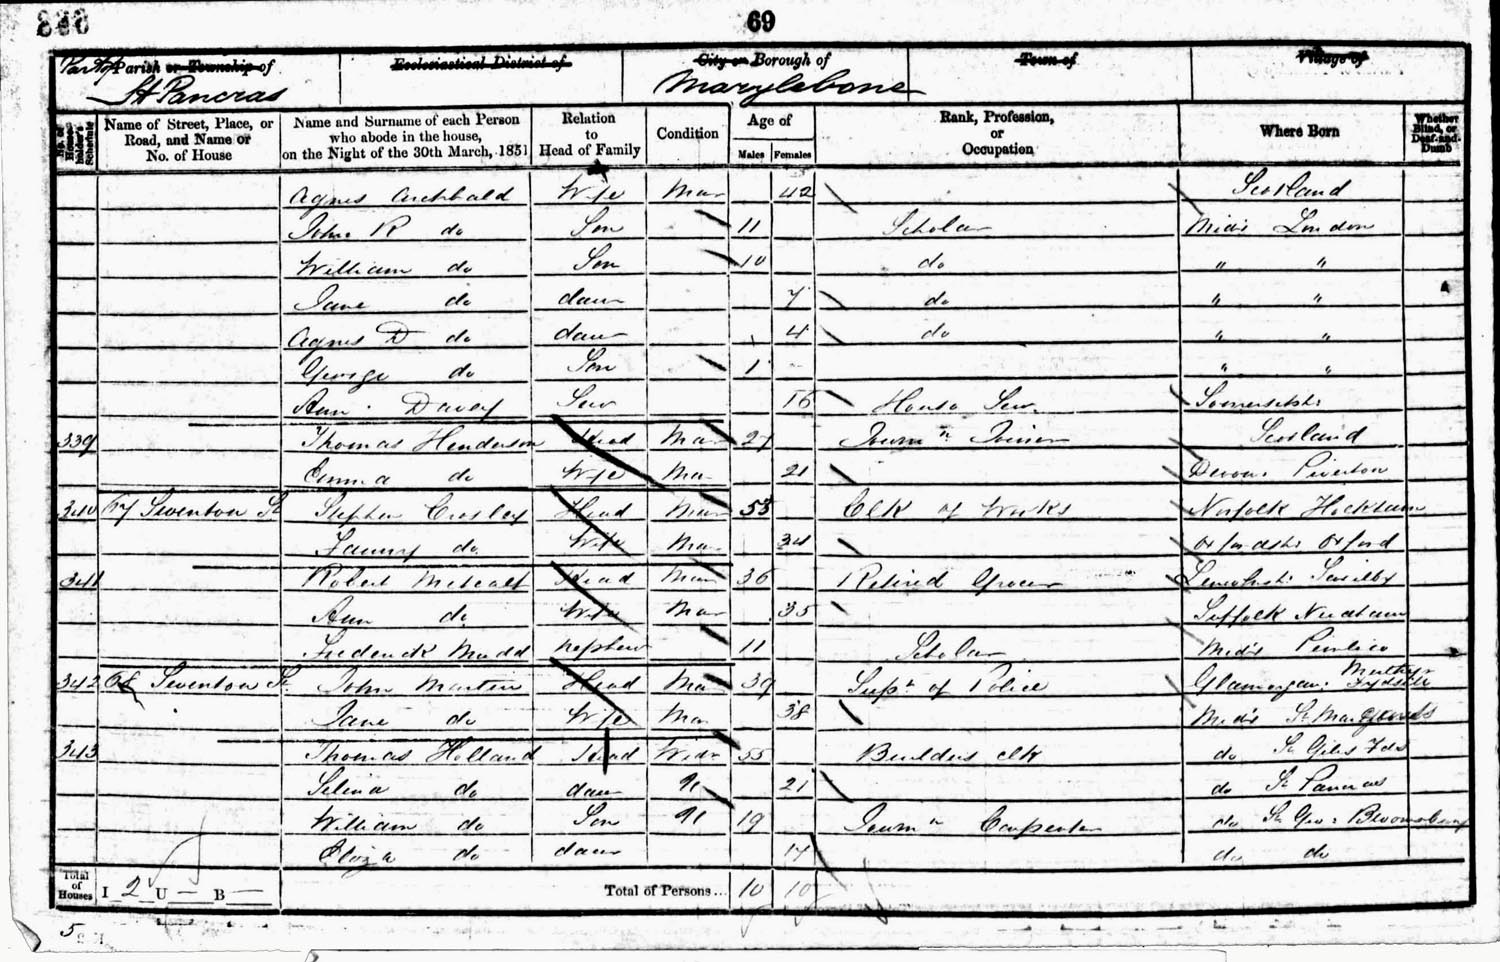 69
Part of Parish or Township of Ecclesiastical District of City or Borough of Town of Village of
St Pancras Marylebone
No. of Householder's Schedule Name of Street, Place, or Road, and Name or No. of House Name and Surname of each Person who abode in the house, on the Night of the 30th March, 1851 Relation to Head of Family Condition Age of Males Females Rank, Profession, or Occupation Where Born Whether Blind, or Deaf-and-Dumb
Agnes Archbald Wife Mar 42 Scotland
John R do Son 11 Scholar Midx London
William do Son 10 do " "
Jane do daur 7 do " "
Agnes D do daur 4 do " "
George do Son 1 " "
Ann Davey Serv 16 House Serv Somersetsh:
339 Thomas Henderson Head Mar 27 Journ n Joiner Scotland
Emma do Wife Mar 21 Devon: Tiverton
340 67 Seventon St Stephen Crosley Head Mar 53 Clk of Works Norfolk Hockham
Fanny do Wife Mar 34 Oxfordsh: Oxford
341 Robert Metcalf Head Mar 36 Retired Grocer Lincolnsh:
Ann do Wife Mar 35 Suffolk Needham
Frederick Mudd nephew 11 Scholar Midx Pimlico
342 68 Seventon St John Martin Head Mar 39 Supt of Police Glamorgan: Merthyr Tydville
Jane do Wife Mar 38 Midx St Margarets
343 Thomas Holland Head Widr 55 Builders clk do St Giles Flds
Selina do daur U 21 do St Pancras
William do Son U 19 Journ n Carpenter do St Geo: Bloomsbury
Eliza do daur 17 do do
Total of Houses I 2 U — B — Total of Persons... 10 10
5